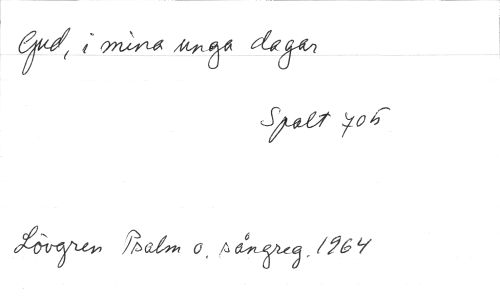 Gud, i mina unga dagar
Spalt 705
Lövgren Psalm o. sångreg. 1964